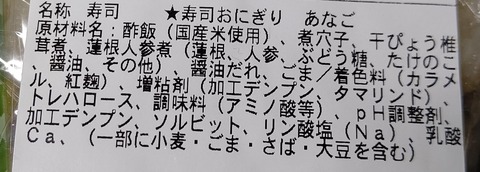 名称 寿司　★寿司おにぎり　あなご
原材料名：酢飯（国産米使用）、煮穴子、干ぴょう椎
茸煮、蓮根人参煮（蓮根、人参、ぶどう糖、たけのこ
、醤油、その他）、醤油だれ、ごま／着色料（カラメ
ル、紅麹）、増粘剤（加工デンプン、タマリンド）、
トレハロース、調味料（アミノ酸等）、ｐＨ調整剤、
加工デンプン、ソルビット、リン酸塩（Ｎａ）、乳酸
Ｃａ、（一部に小麦・ごま・さば・大豆を含む）